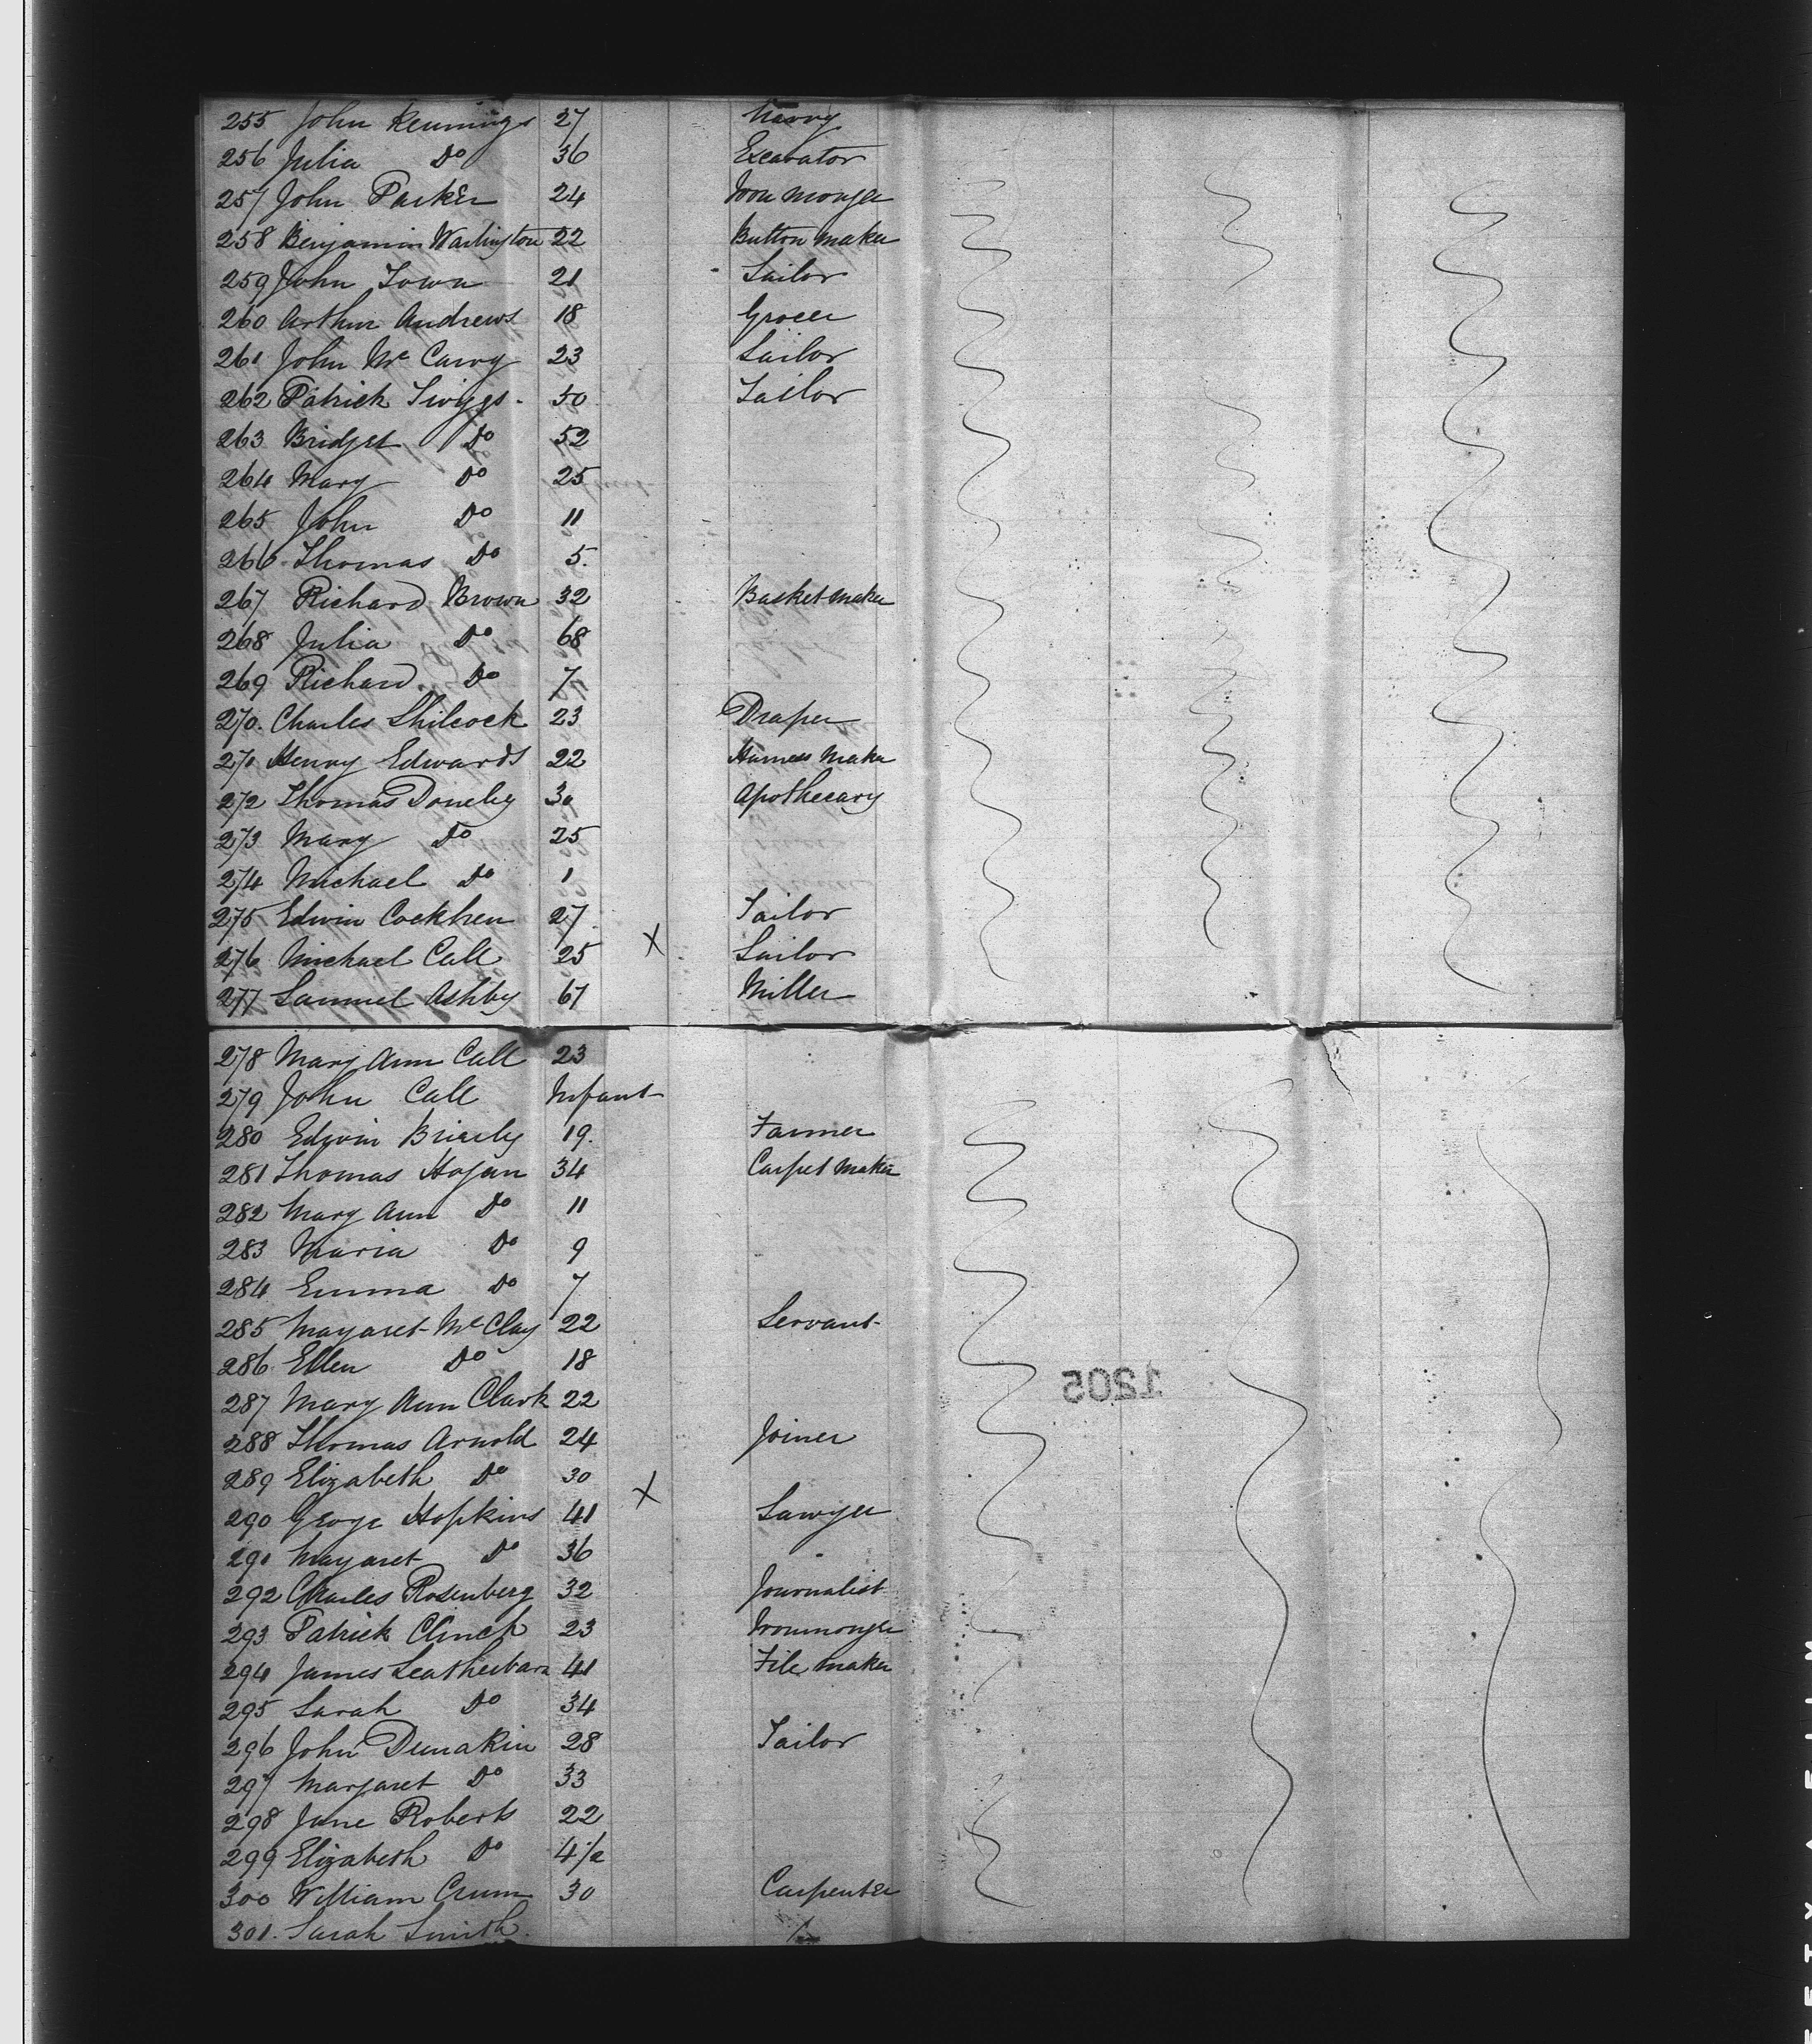 255 John Kennings 27 Navvy
256 Julia Do 36 Excavator
257 John Parker 24 Iron monger
258 Benjamin Warlington 22 Button Maker
259 John Town 21 Sailor
260 Arthur Andrews 18 Grocer
261 John Mc Carvy 23 Sailor
262 Patrick Twiggs 50 Tailor
263 Bridget Do 52
264 Mary Do 25
265 John Do 11
266 Thomas Do 5
267 Richard Brown 32 Basket maker
268 Julia Do 68
269 Richard Do 7
270 Charles Shilcock 23 Draper
271 Henry Edwards 22 Harness Maker
272 Thomas 30 Apothecary
273 Mary Do 25
274 Michael Do 1
275 Edwin 27 Tailor
276 Michael Call 25 X Sailor
277 Samuel Ashby 67 Miller
278 Mary Ann Call 23
279 John Call Infant
280 Edwin Brierly 19. Farmer
281 Thomas Hogan 34 Carpet Maker
282 Mary Ann Do 11
283 Maria Do 9
284 Emma Do 7
285 Margaret McClay 22 Servant
286 Ellen Do 18
287 Mary Ann Clark 22
288 Thomas Arnold 24 Joiner
289 Elizabeth Do 30 X
290 George Hopkins 41 Sawyer
291 Margaret Do 36
292 Charles Rosenberg 32 Journalist
293 Patrick Clinch 23 Ironmonger
294 James Leatherbarn 41 File maker
295 Sarah Do 34
296 John Dunakin 28 Tailor
297 Margaret Do 33
298 Jane Roberts 22
299 Elizabeth Do 4 1/2
300 William Crum 30 Carpenter
301. Sarah Smith
1205